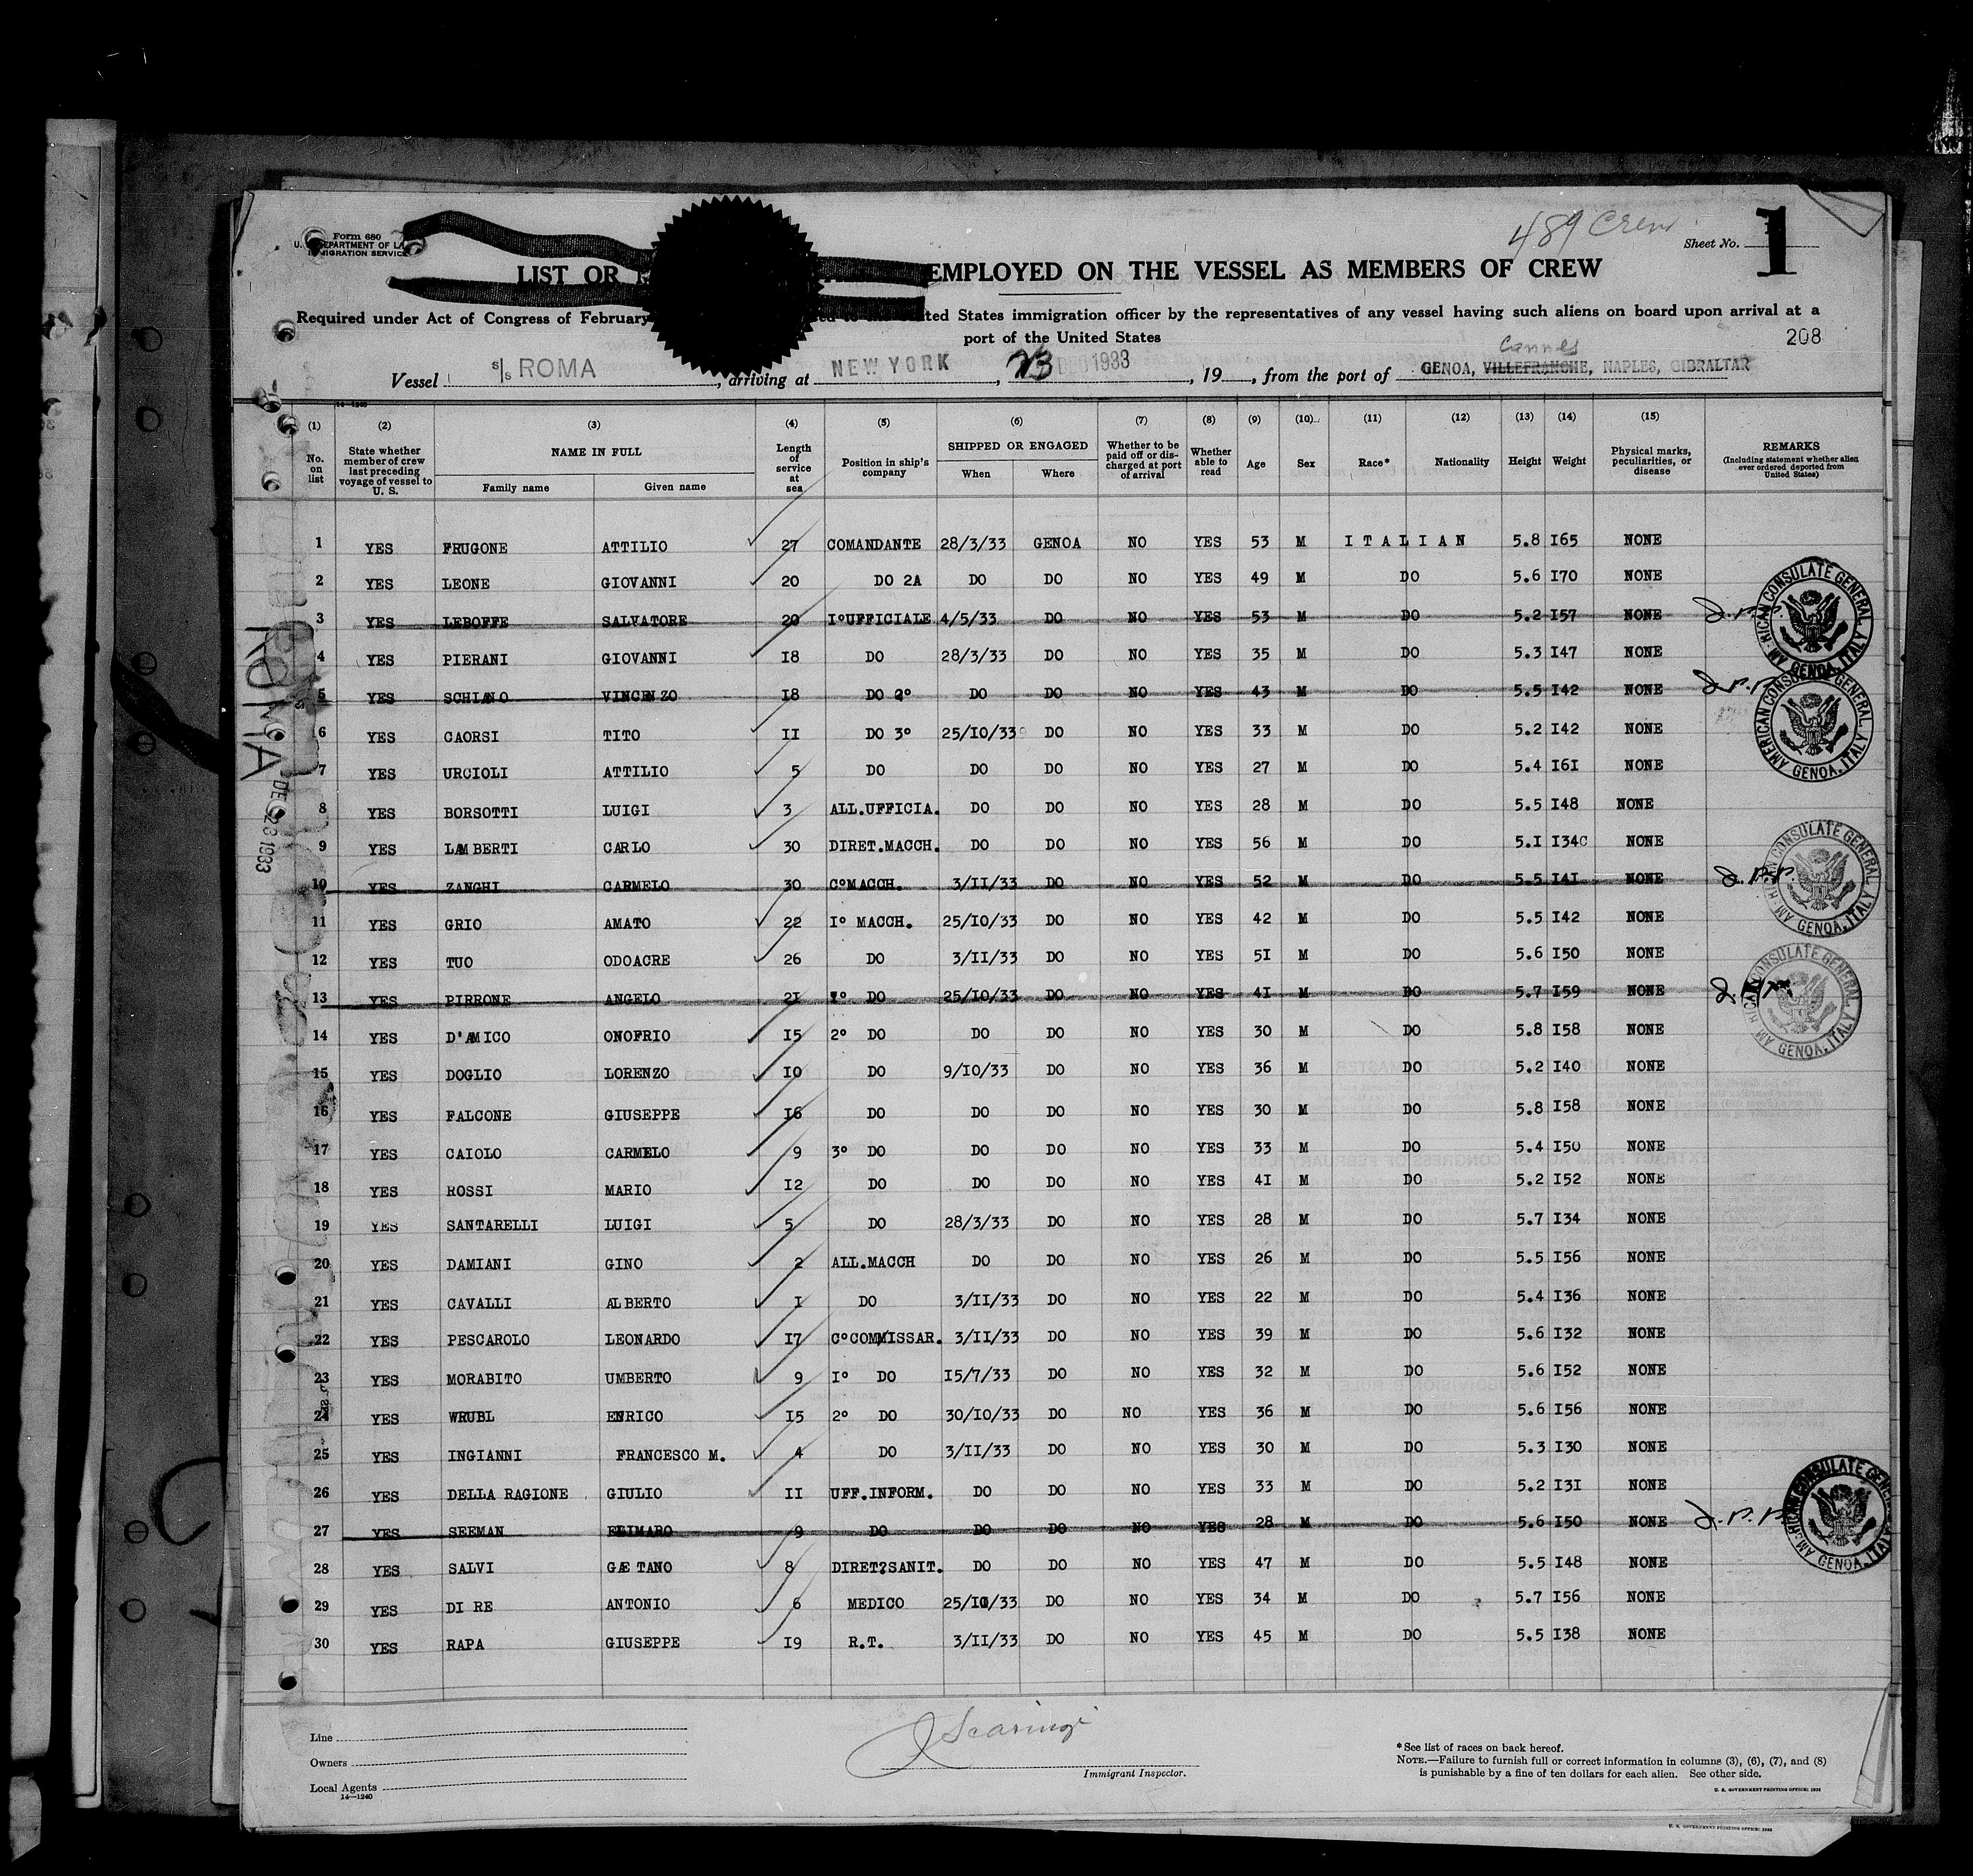 Form 680
489 Crew
Sheet No. 1
LIST OR EMPLOYED ON THE VESSEL AS MEMBERS OF CREW
Required under Act of Congress of February United States immigration officer by the representatives of any vessel having such aliens on board upon arrival at a
port of the United States
208
Cannes
Vessel s/s ROMA, arriving at NEW YORK, 23 DEC 1933, 19__, from the port of GENOA, VILLEFRANCHE, NAPLES, GIBRALTAR
(1) (2) (3) (4) (5) (6) (7) (8) (9) (10) (11) (12) (13) (14) (15)
No. on list State whether member of crew last preceding voyage of vessel to U. S. NAME IN FULL Family name Given name Length of service at sea Position in ship's company SHIPPED OR ENGAGED When Where Whether to be paid off or discharged at port of arrival Whether able to read Age Sex Race* Nationality Height Weight Physical marks, peculiarities, or disease REMARKS (Including statement whether alien ever ordered deported from United States)
1 YES FRUGONE ATTILIO 27 COMANDANTE 28/3/33 GENOA NO YES 53 M ITALIAN 5.8 I65 NONE
2 YES LEONE GIOVANNI 20 DO 2A DO DO NO YES 49 M DO 5.6 I70 NONE
3 YES LEBOFFE SALVATORE 20 I°UFFICIALE 4/5/33 DO NO YES 53 M DO 5.2 I57 NONE
4 YES PIERANI GIOVANNI I8 DO 28/3/33 DO NO YES 35 M DO 5.3 I47 NONE
5 YES SCHIANO VINCENZO I8 DO 2° DO DO NO YES 43 M DO 5.5 I42 NONE
6 YES CAORSI TITO II DO 3° 25/IO/33 DO NO YES 33 M DO 5.2 I42 NONE
7 YES URCIOLI ATTILIO 5 DO DO DO NO YES 27 M DO 5.4 I6I NONE
8 YES BORSOTTI LUIGI 3 ALL.UFFICIA. DO DO NO YES 28 M DO 5.5 I48 NONE
9 YES LAMBERTI CARLO 30 DIRET.MACCH. DO DO NO YES 56 M DO 5.I I34 NONE
10 YES ZANGHI CARMELO 30 C°MACCH. 3/II/33 DO NO YES 52 M DO 5.5 I4I NONE
11 YES GRIO AMATO 22 I° MACCH. 25/IO/33 DO NO YES 42 M DO 5.5 I42 NONE
12 YES TUO ODOACRE 26 DO 3/II/33 DO NO YES 5I M DO 5.6 I50 NONE
13 YES PIRRONE ANGELO 2I DO 25/IO/33 DO NO YES 4I M DO 5.7 I59 NONE
14 YES D'AMICO ONOFRIO I5 2° DO DO DO NO YES 30 M DO 5.8 I58 NONE
15 YES DOGLIO LORENZO IO DO 9/IO/33 DO NO YES 36 M DO 5.2 I40 NONE
16 YES FALCONE GIUSEPPE I6 DO DO DO NO YES 30 M DO 5.8 I58 NONE
17 YES CAIOLO CARMELO 9 3° DO DO DO NO YES 33 M DO 5.4 I50 NONE
18 YES ROSSI MARIO I2 DO DO DO NO YES 4I M DO 5.2 I52 NONE
19 YES SANTARELLI LUIGI 5 DO 28/3/33 DO NO YES 28 M DO 5.7 I34 NONE
20 YES DAMIANI GINO 2 ALL.MACCH DO DO NO YES 26 M DO 5.5 I56 NONE
21 YES CAVALLI ALBERTO I DO 3/II/33 DO NO YES 22 M DO 5.4 I36 NONE
22 YES PESCAROLO LEONARDO I7 C°COMMISSAR. 3/II/33 DO NO YES 39 M DO 5.6 I32 NONE
23 YES MORABITO UMBERTO 9 I° DO I5/7/33 DO NO YES 32 M DO 5.6 I52 NONE
24 YES WRUBL ENRICO I5 2° DO 30/IO/33 DO NO YES 36 M DO 5.6 I56 NONE
25 YES INGIANNI FRANCESCO M. 4 DO 3/II/33 DO NO YES 30 M DO 5.3 I30 NONE
26 YES DELLA RAGIONE GIULIO II UFF.INFORM. DO DO NO YES 33 M DO 5.2 I3I NONE
27 YES SEEMAN 9 DO DO DO NO YES 28 M DO 5.6 I50 NONE
28 YES SALVI GAETANO 8 DIRET?SANIT. DO DO NO YES 47 M DO 5.5 I48 NONE
29 YES DI RE ANTONIO 6 MEDICO 25/IO/33 DO NO YES 34 M DO 5.7 I56 NONE
30 YES RAPA GIUSEPPE I9 R.T. 3/II/33 DO NO YES 45 M DO 5.5 I38 NONE
AMERICAN CONSULATE GENERAL, GENOA, ITALY
AMERICAN CONSULATE GENERAL, GENOA, ITALY
AMERICAN CONSULATE GENERAL, GENOA, ITALY
AMERICAN CONSULATE GENERAL, GENOA, ITALY
AMERICAN CONSULATE GENERAL, GENOA, ITALY
ROMA
DEC 23 1933
Line
Owners
Local Agents
14—1240
Immigrant Inspector.
*See list of races on back hereof.
NOTE.—Failure to furnish full or correct information in columns (3), (6), (7), and (8)
is punishable by a fine of ten dollars for each alien. See other side.
U. S. GOVERNMENT PRINTING OFFICE: 1932
U. S. GOVERNMENT PRINTING OFFICE: 1932